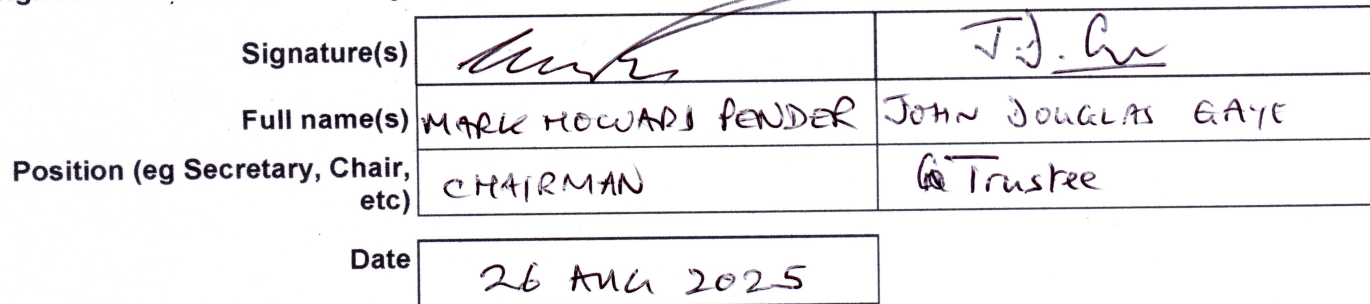 Signature(s) J.D.
Full name(s) MARK HOWARD PENDER JOHN DOUGLAS GAYE
Position (eg Secretary, Chair, CHAIRMAN Trustee
etc)
Date 26 AUG 2025